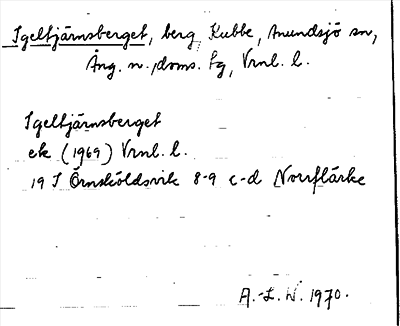 Igeltjärnsberget, berg, Kubbe, Anundsjö sn,
Ång. n. doms. fg, Vrnl. l.
Igeltjärnsberget
ek (1969) Vrnl. l.
19 I Örnsköldsvik 8-9 c-d Norrflärke
A.-L. W. 1970.